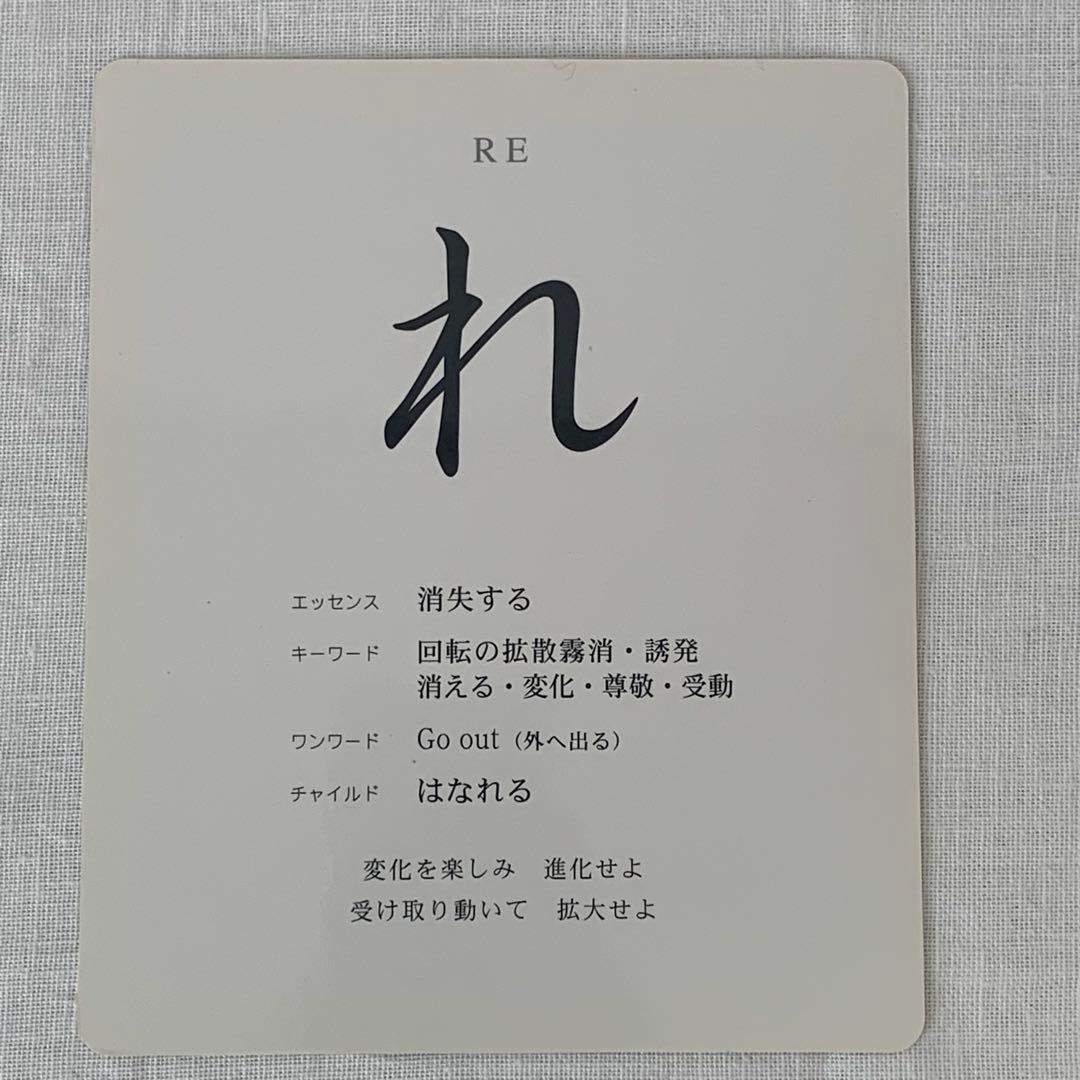 RE
れ
エッセンス 消失する
キーワード 回転の拡散霧消・誘発
消える・変化・尊敬・受動
ワンワード Go out（外へ出る）
チャイルド はなれる
変化を楽しみ　進化せよ
受け取り動いて　拡大せよ